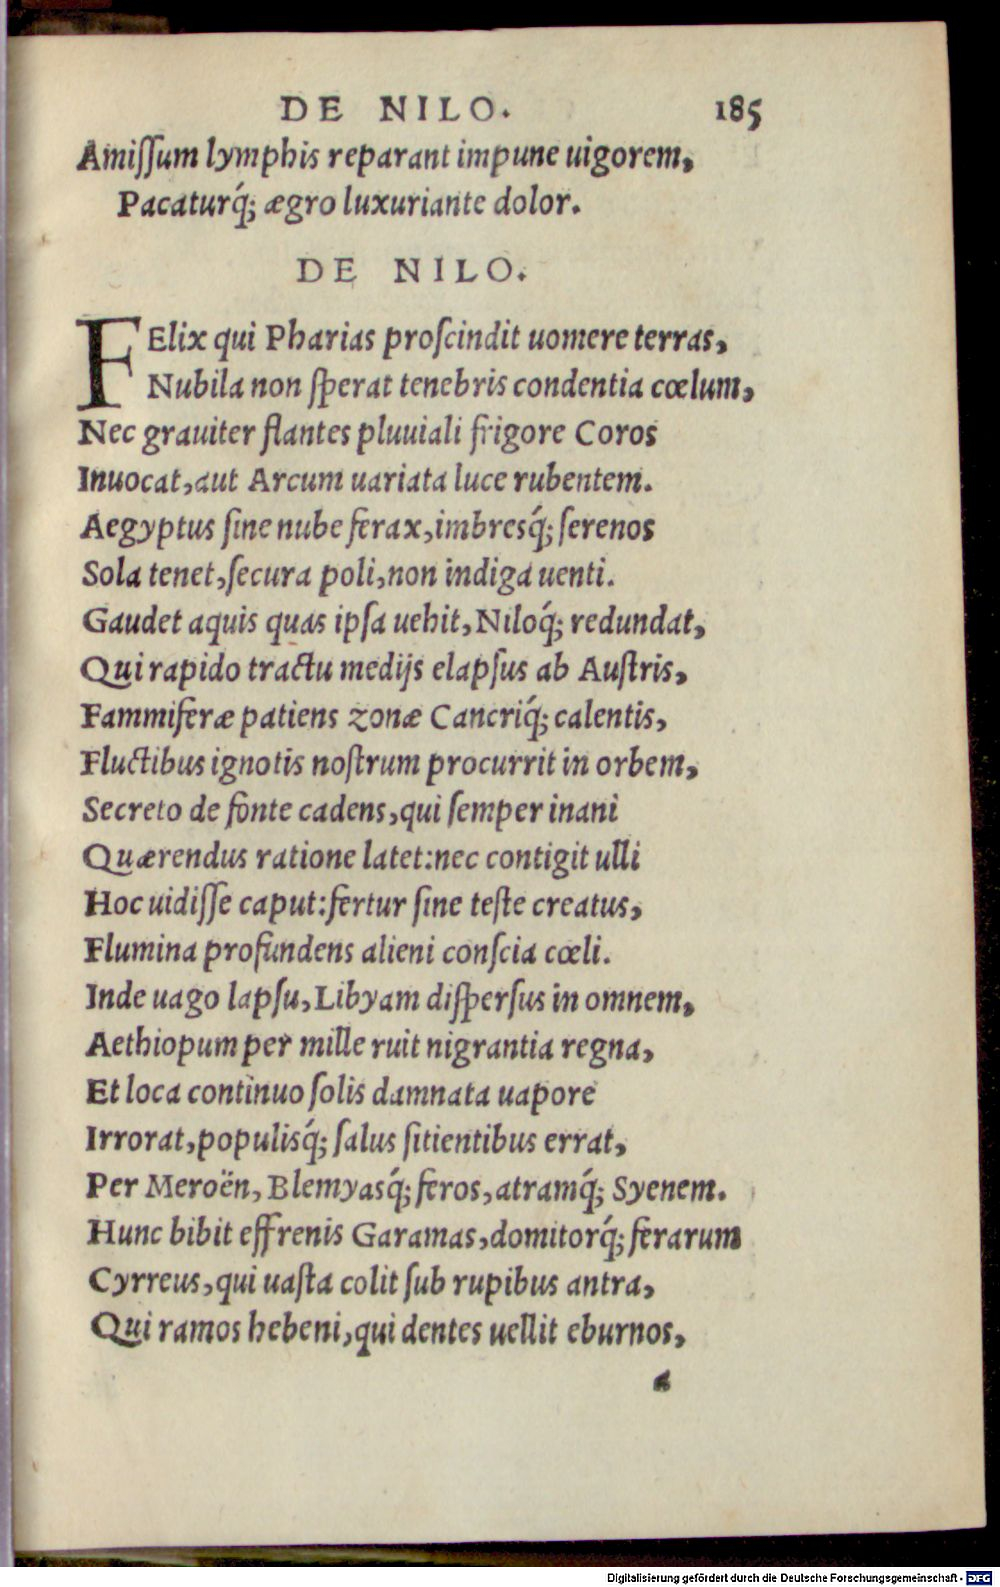 DE NILO. 185
Amiſſum lymphis reparant impune uigorem,
Pacaturq́; ægro luxuriante dolor.
DE NILO.
FElix qui Pharias proſcindit uomere terras,
Nubila non ſperat tenebris condentia cœlum,
Nec grauiter flantes pluuiali frigore Coros
Inuocat, aut Arcum uariata luce rubentem.
Aegyptus ſine nube ferax, imbresq́; ſerenos
Sola tenet, ſecura poli, non indiga uenti.
Gaudet aquis quas ipſa uehit, Niloq́; redundat,
Qui rapido tractu medijs elapſus ab Auſtris,
Fammiferæ patiens zonæ Cancriq́; calentis,
Fluctibus ignotis noſtrum procurrit in orbem,
Secreto de fonte cadens, qui ſemper inani
Quærendus ratione latet: nec contigit ulli
Hoc uidiſſe caput: fertur ſine teſte creatus,
Flumina profundens alieni conſcia cœli.
Inde uago lapſu, Libyam diſperſus in omnem,
Aethiopum per mille ruit nigrantia regna,
Et loca continuo ſolis damnata uapore
Irrorat, populisq́; ſalus ſitientibus errat,
Per Meroën, Blemyasq́; feros, atramq́; Syenem.
Hunc bibit effrenis Garamas, domitorq́; ferarum
Cyrreus, qui uaſta colit ſub rupibus antra,
Qui ramos hebeni, qui dentes uellit eburnos,
Digitalisierung gefördert durch die Deutsche Forschungsgemeinschaft - DFG